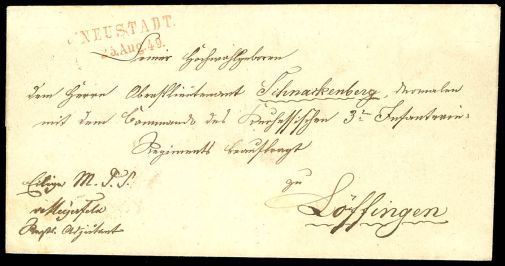 NEUSTADT.
25. Aug. 49.
Seiner Hochwohlgeboren
dem Herrn Oberstlieutenant Schnackenberg, dermalen
mit dem Commando des Kurhessischen 3n Infanterie-
Regiments beauftragt
zu
Löffingen
Eilige M. D. S.
Regts. Adjutant